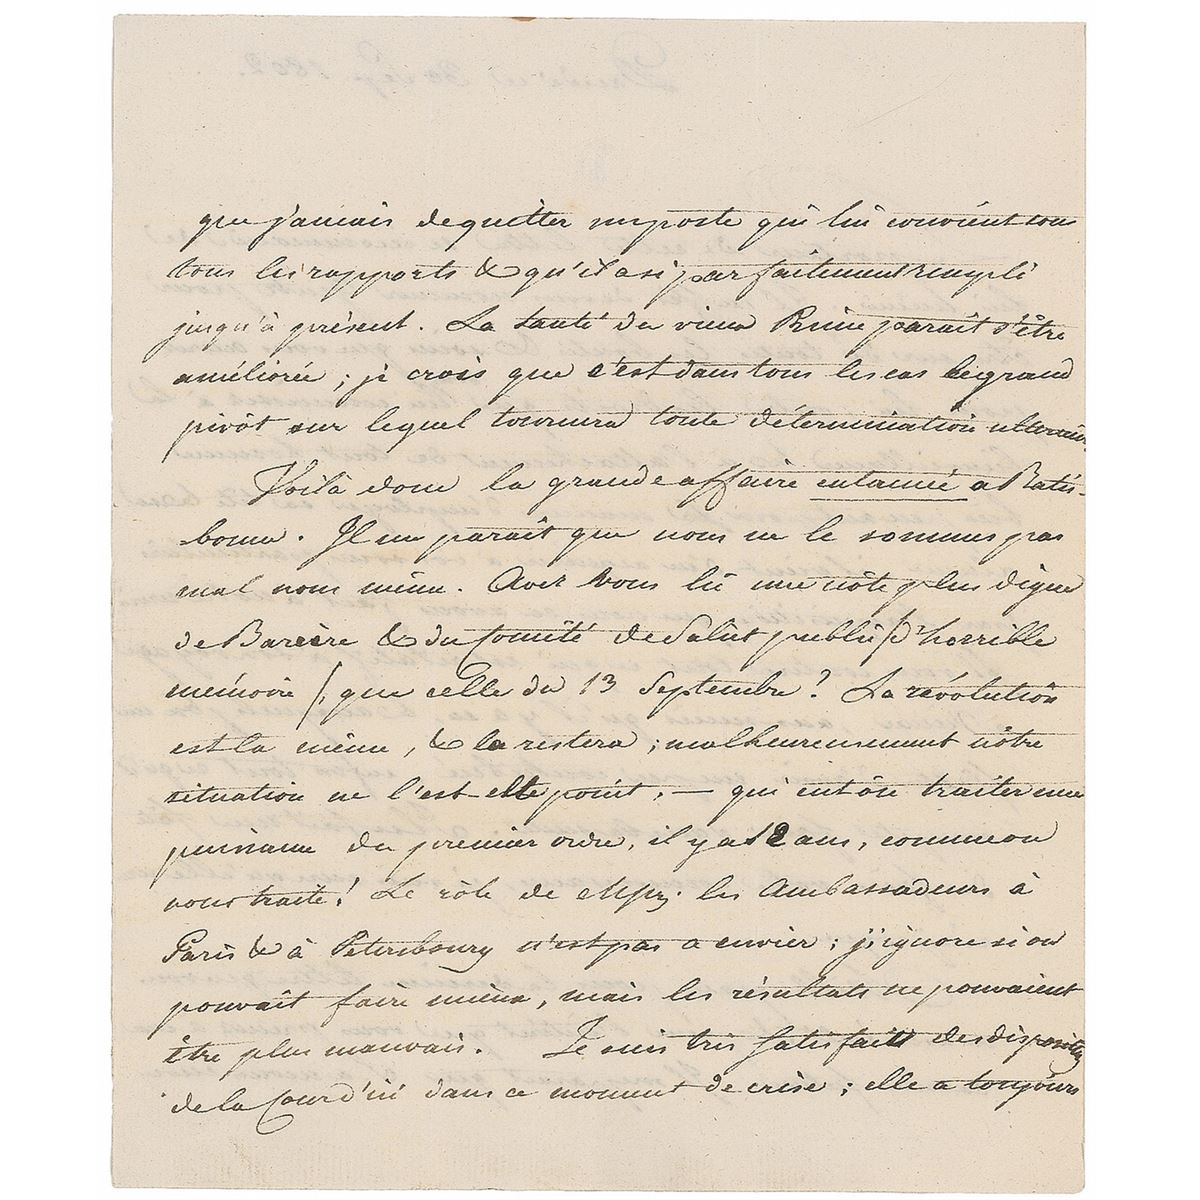 que jamais de quitter un poste qui lui convient sous
tous les rapports & qu'il a si parfaitement rempli
jusqu'à présent. La santé du vieux Prince parait s'être
améliorée ; je crois que c'est dans tous les cas le grand
pivôt sur lequel tournera toute détermination ultérieure.
Voilà donc la grande affaire entamée a Ratis-
bonne. Il me parait que nous ne le sommes pas
mal nous même. Avez vous lu une nôte plus digne
de Barrère & du Comité de Salut public (d'horrible
mémoire), que celle du 13 Septembre? La révolution
est la même, & la restera ; malheureusement nôtre
situation ne l'est-elle point, — qui eut ôsé traiter une
puissance du premier ordre, il y a 12 ans, comme on
nous traite! Le rôle de Mssrs. les Ambassadeurs à
Paris & à Pétersbourg n'est pas a envier ; j'ignore si on
pouvait faire mieux, mais les résultats ne pouvaient
être plus mauvais. Je suis très satisfait des dispositions
de la Cour d'ici dans ce moment de crise ; elle a toujours